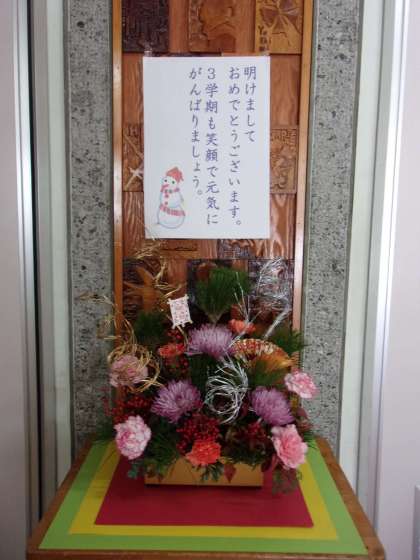 明けまして
おめでとうございます。
３学期も笑顔で元気に
がんばりましょう。